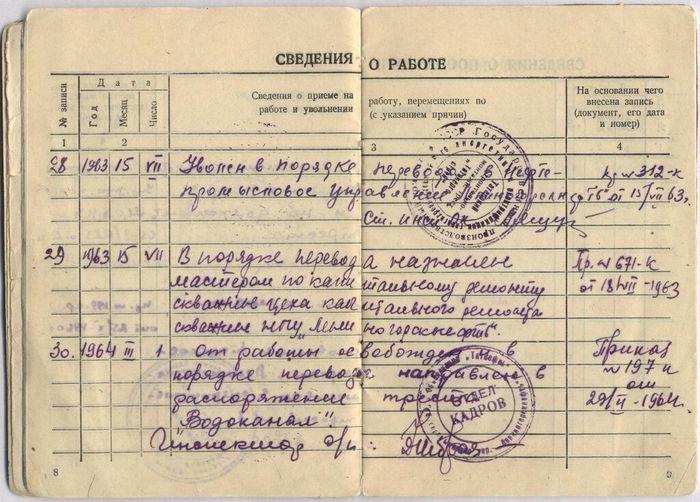 СВЕДЕНИЯ О РАБОТЕ
№ записи
Дата
Год
Месяц
Число
Сведения о приеме на работу, перемещениях по
работе и увольнении (с указанием причин)
На основании чего
внесена запись
(документ, его дата
и номер)
1 2 3 4
28 1963 15 VII Уволен в порядке перевода в нефте- Пр. № 312-к
промысловое управление от 15/VII 63г.
Ст. инсп. ОК
29 1963 15 VII В порядке перевода назначен Пр. № 671-к
мастером по капитальному ремонту от 18/VII-1963
скважин цеха капитального ремонта
скважин НПУ
30. 1964 III 1 От работы освобожден в Приказ
порядке перевода направлен в № 197 к
распоряжение треста от
"Водоканал" 29/II-1964г.
Инспектор о/к
ОТДЕЛ
КАДРОВ
8 9